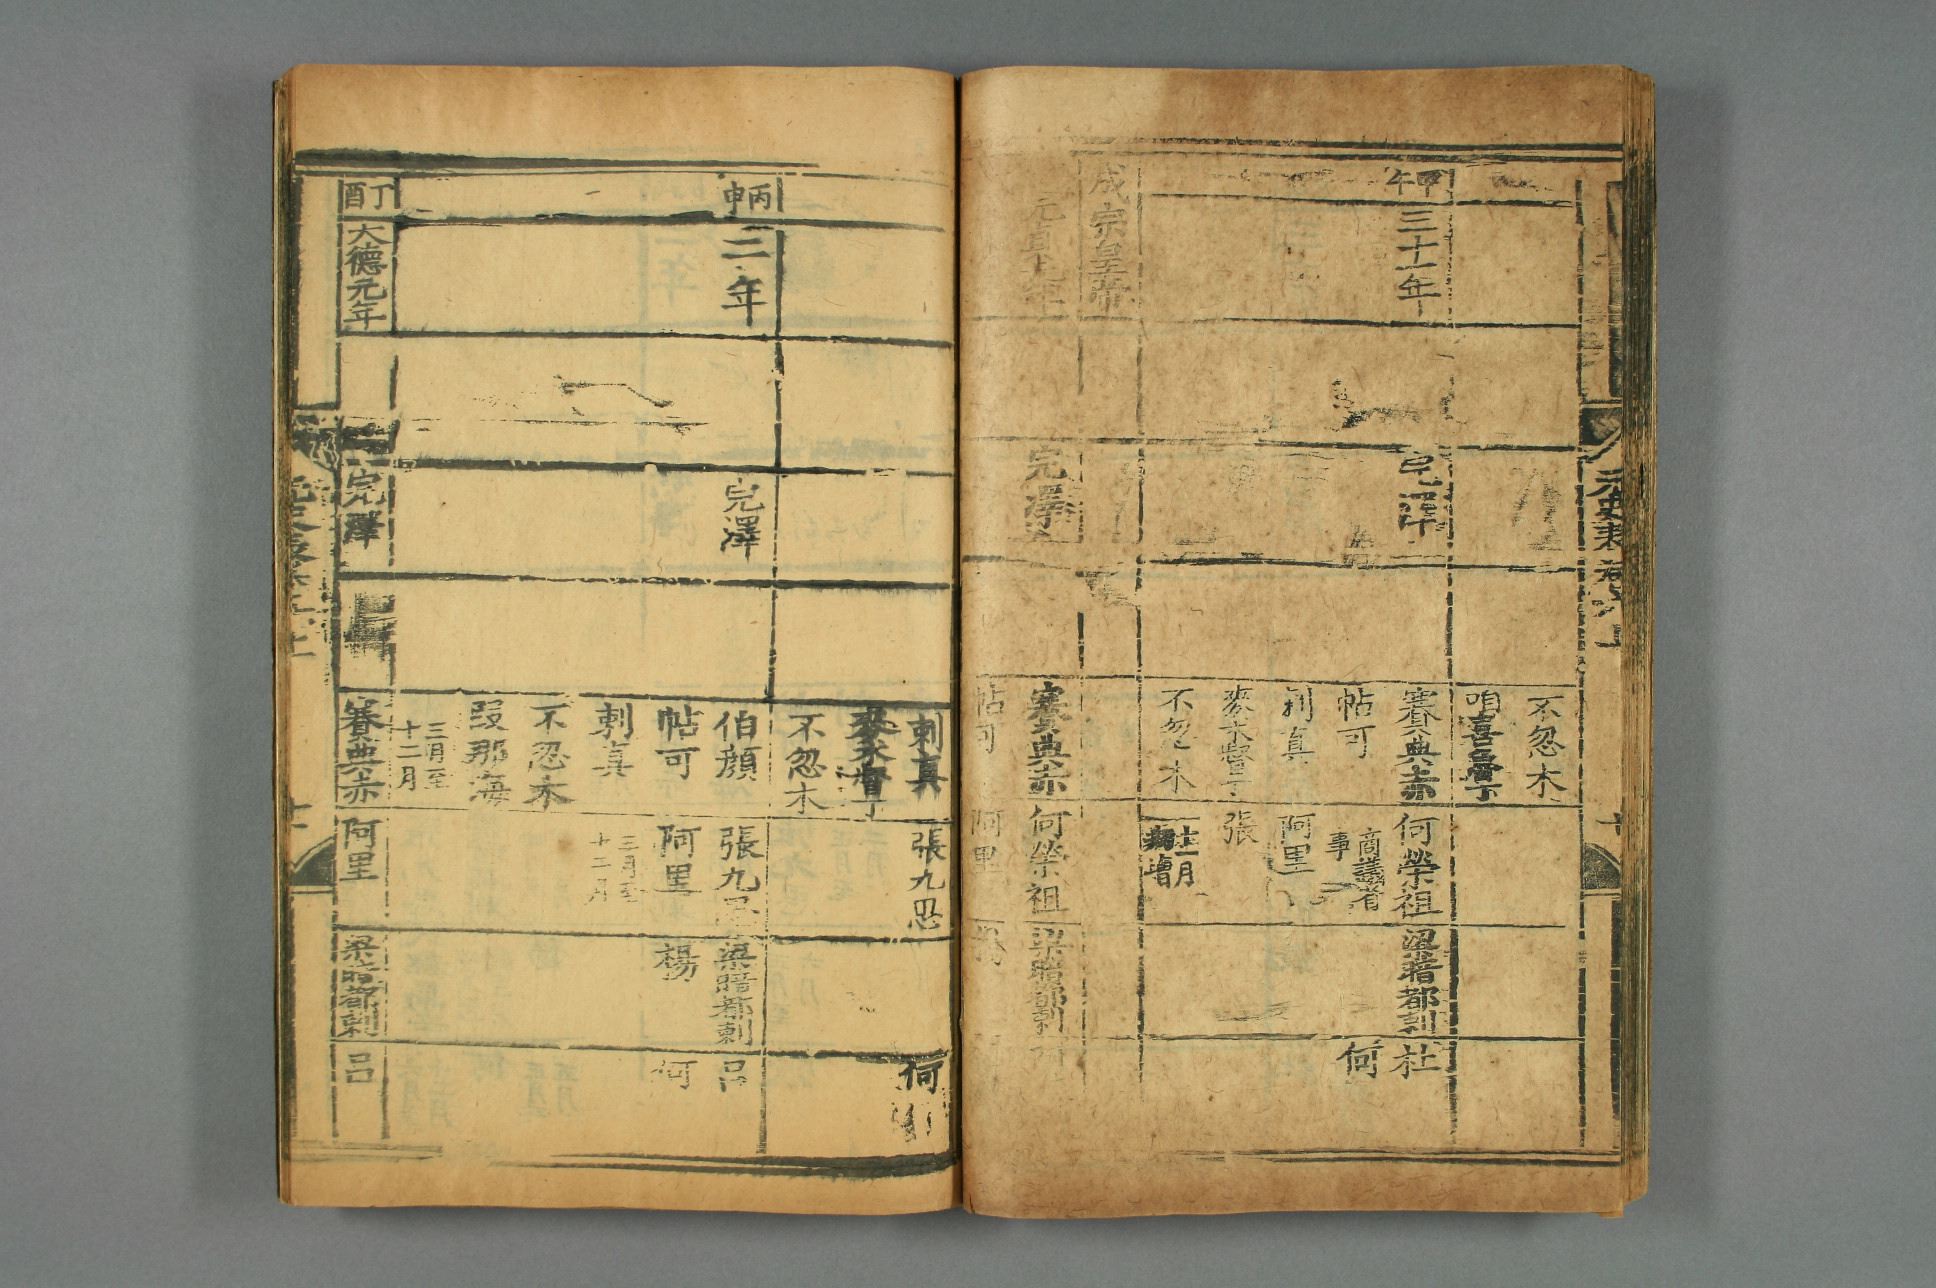 不忽木
咱喜魯丁
甲午
三十一年
完澤
賽典赤
何榮祖
梁暗都剌
杜
帖可
商議省
事
何
剌真
阿里
麥朮督丁
張
不忽木
十一月
成宗皇帝
元貞元年
完澤
賽典赤
何榮祖
梁暗都剌
帖可
阿里
剌真
張九思
何
麥朮督丁
不忽木
丙申
二年
完澤
伯顏
張九思
梁暗都剌
呂
帖可
阿里
楊
何
剌真
三月至
十二月
不忽木
段那海
三月至
十二月
丁酉
大德元年
完澤
賽典赤
阿里
梁暗都剌
呂